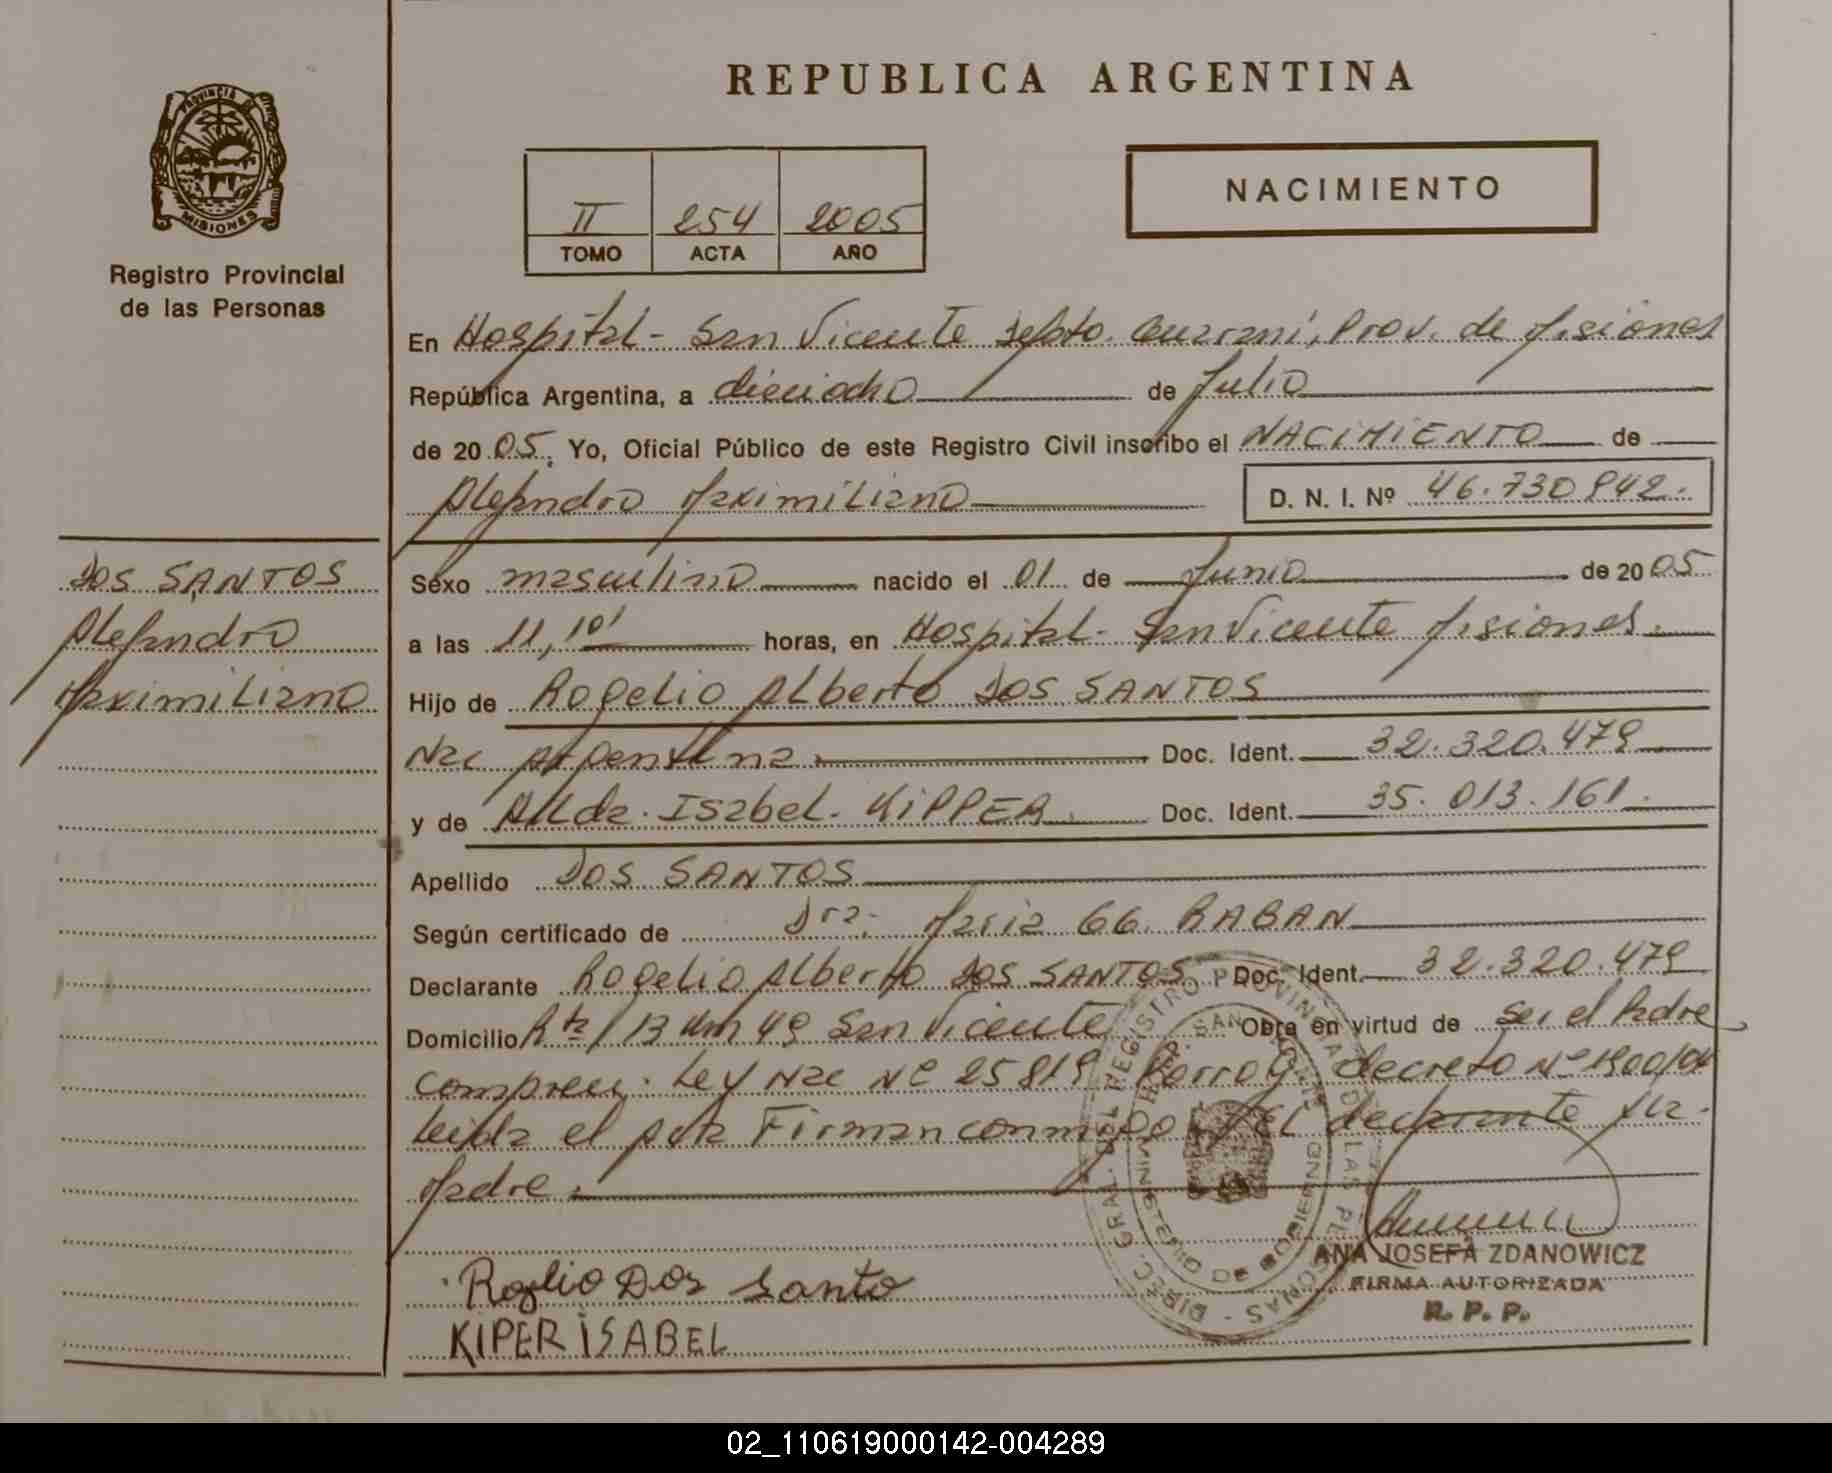 REPUBLICA ARGENTINA
PROVINCIA DE
MISIONES
Registro Provincial
de las Personas
II 254 2005
TOMO ACTA AÑO
NACIMIENTO
En Hospital - San Vicente Depto. Guarani, Prov. de Misiones
República Argentina, a dieciocho de Julio
de 2005. Yo, Oficial Público de este Registro Civil inscribo el NACIMIENTO de
Alejandro Maximiliano D. N. I. Nº 46.730.942.
DOS SANTOS
Alejandro
Maximiliano
Sexo masculino nacido el 01 de Junio de 2005
a las 11,10' horas, en Hospital - San Vicente Misiones.
Hijo de Rogelio Alberto DOS SANTOS
Nac Argentina Doc. Ident. 32.320.479
y de Alida Isabel KIPPER Doc. Ident. 35.013.161.
Apellido DOS SANTOS
Según certificado de Dra. Maria GG. RABAN
Declarante Rogelio Alberto DOS SANTOS Doc. Ident. 32.320.479
Domicilio Rta 13 Km 49 San Vicente Obra en virtud de ser el Padre
compren. Ley Nac Nº 25819 Porrog. decreto Nº 1900/04
Leida el acta Firman conmigo El declarante y la
Madre.
DIREC. GRAL. DEL REGISTRO PROVINCIAL DE LAS PERSONAS
SAN VICENTE
MINISTERIO DE GOBIERNO
ANA JOSEFA ZDANOWICZ
FIRMA AUTORIZADA
R. P. P.
Roglio Dos Santo
KIPER ISABEL
02_110619000142-004289